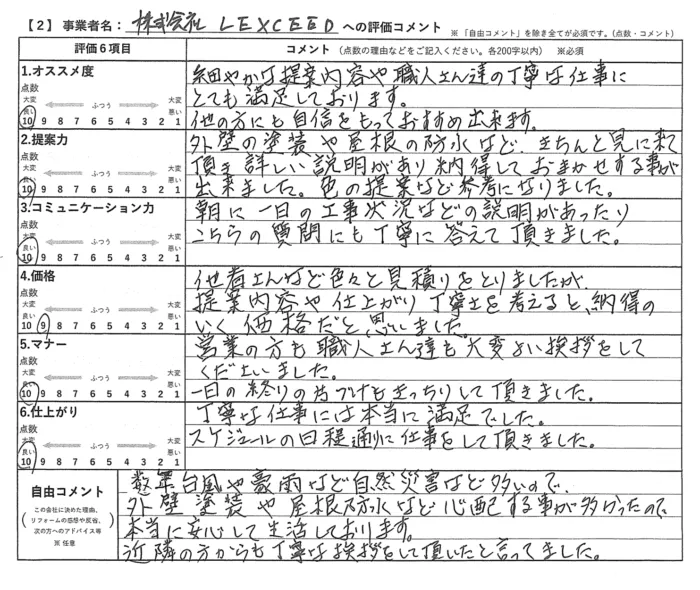 【2】事業者名： 株式会社 LEXCEED への評価コメント ※「自由コメント」を除き全てが必須です。(点数・コメント)
評価6項目 コメント（点数の理由などをご記入ください。各200字以内） ※必須
1.オススメ度
点数
大変 ふつう 大変
良い 悪い
10 9 8 7 6 5 4 3 2 1
細やかな提案内容や職人さん達の丁寧な仕事に
とても満足しております。
他の方にも自信をもっておすすめ出来ます。
2.提案力
点数
大変 ふつう 大変
良い 悪い
10 9 8 7 6 5 4 3 2 1
外壁の塗装や屋根の防水など、きちんと見に来て
頂き詳しい説明があり納得しておまかせする事が
出来ました。色の提案など参考になりました。
3.コミュニケーション力
点数
大変 ふつう 大変
良い 悪い
10 9 8 7 6 5 4 3 2 1
朝に一日の工事状況などの説明があったり
こちらの質問にも丁寧に答えて頂きました。
4.価格
点数
大変 ふつう 大変
良い 悪い
10 9 8 7 6 5 4 3 2 1
他者さんなど色々と見積りをとりましたが、
提案内容や仕上がり丁寧さを考えると、納得の
いく価格だと思いました。
5.マナー
点数
大変 ふつう 大変
良い 悪い
10 9 8 7 6 5 4 3 2 1
営業の方も職人さん達も大変よい挨拶をして
くださいました。
一日の終りの片づけもきっちりして頂きました。
6.仕上がり
点数
大変 ふつう 大変
良い 悪い
10 9 8 7 6 5 4 3 2 1
丁寧な仕事には本当に満足でした。
スケジュールの日程通りに仕事をして頂きました。
自由コメント
この会社に決めた理由、
リフォームの感想や反省、
次の方へのアドバイス等
※ 任意
数年台風や豪雨など自然災害など多いので、
外壁塗装や屋根防水など心配する事が多かったので
本当に安心して生活しております。
近隣の方からも丁寧な挨拶をして頂いたと言ってました。